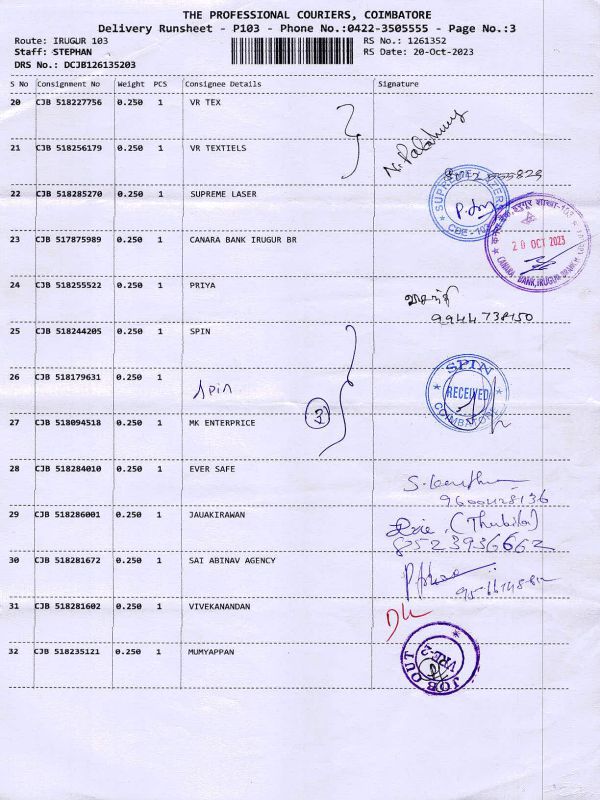 THE PROFESSIONAL COURIERS, COIMBATORE
Delivery Runsheet - P103 - Phone No.:0422-3505555 - Page No.:3
Route: IRUGUR 103 RS No.: 1261352
Staff: STEPHAN RS Date: 20-Oct-2023
DRS No.: DCJB126135203
S No Consignment No Weight PCS Consignee Details Signature
20 CJB 518227756 0.250 1 VR TEX
21 CJB 518256179 0.250 1 VR TEXTIELS
22 CJB 518285270 0.250 1 SUPREME LASER
CBE-103
23 CJB 517875989 0.250 1 CANARA BANK IRUGUR BR
20 OCT 2023
24 CJB 518255522 0.250 1 PRIYA
9944738150
25 CJB 518244205 0.250 1 SPIN
26 CJB 518179631 0.250 1 Spin
SPIN
RECEIVED
COIMBATORE
3
27 CJB 518094518 0.250 1 MK ENTERPRICE
28 CJB 518284010 0.250 1 EVER SAFE
9600428136
29 CJB 518286001 0.250 1 JAUAKIRAWAN
8523936662
30 CJB 518281672 0.250 1 SAI ABINAV AGENCY
31 CJB 518281602 0.250 1 VIVEKANANDAN
32 CJB 518235121 0.250 1 MUMYAPPAN
JOB OUT
VRE-2